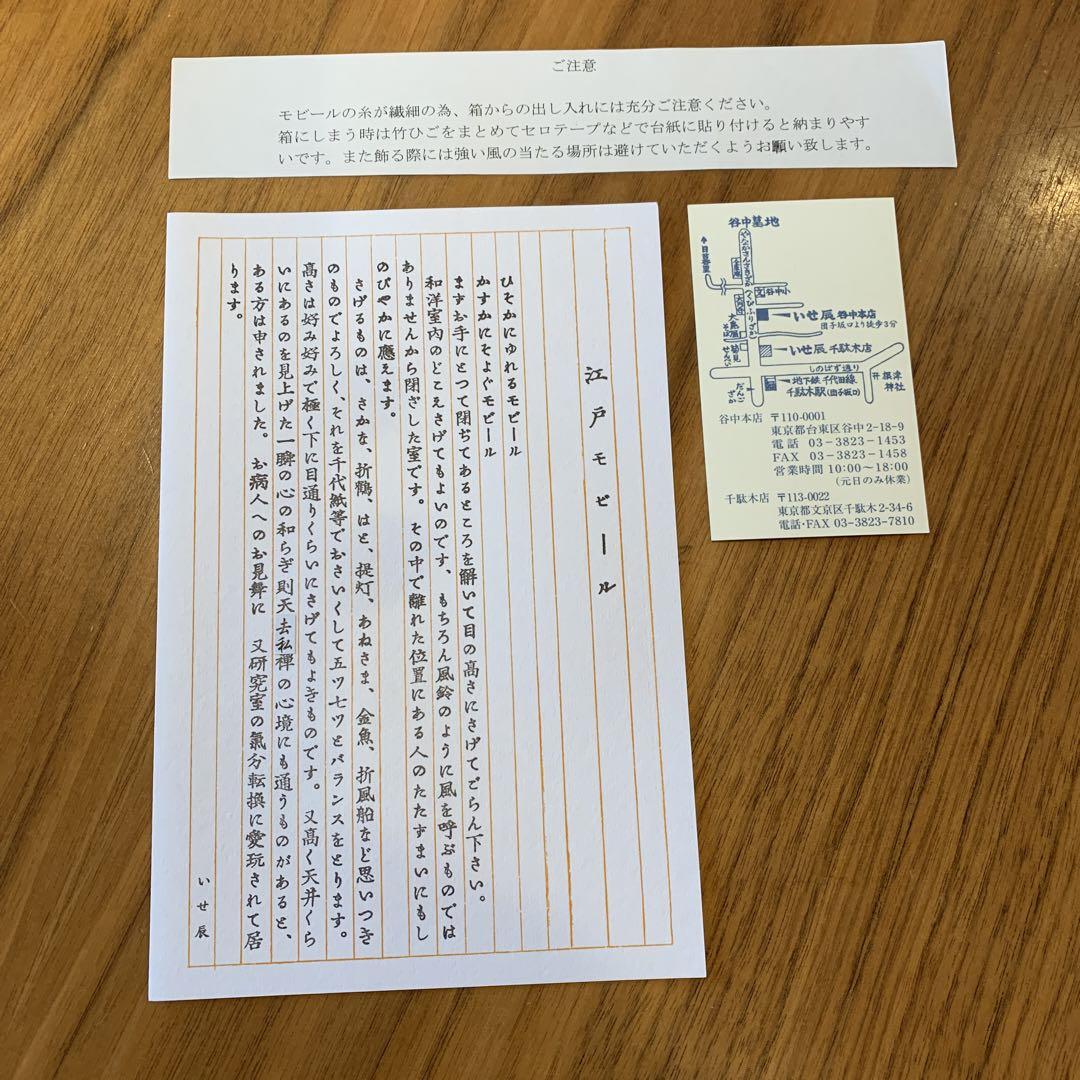 ご注意
モビールの糸が繊細の為、箱からの出し入れには充分ご注意ください。
箱にしまう時は竹ひごをまとめてセロテープなどで台紙に貼り付けると納まりやす
いです。また飾る際には強い風の当たる場所は避けていただくようお願い致します。
江戸モビール
ひそかにゆれるモビール
かすかにそよぐモビール
まずお手にとつて閉ぢてあるところを解いて目の高さにさげてごらん下さい。
和洋室内のどこえさげてもよいのです、もちろん風鈴のように風を呼ぶものでは
ありませんから閉ざした室です。その中で離れた位置にある人のたたずまいにもし
のびやかに應えます。
さげるものは、さかな、折鶴、はと、提灯、あねさま、金魚、折風船など思いつき
のものでよろしく、それを千代紙等でおさいくして五ツ七ツとバランスをとります。
高さは好み好みで極く下に目通りくらいにさげてもよきものです。又高く天井くら
いにあるのを見上げた一瞬の心の和らぎ則天去私禅の心境にも通うものがあると、
ある方は申されました。お病人へのお見舞に 又研究室の氣分転換に愛玩されて居
ります。
いせ辰
谷中墓地
やなかさんさきざか
今日暮里
文谷中小
へびふりざか
いせ辰 谷中本店
団子坂口より徒歩3分
いせ辰 千駄木店
菊見
せんべい
しのばず通り
地下鉄 千代田線
千駄木駅(団子坂口)
だんござか
根津
神社
谷中本店 〒110-0001
東京都台東区谷中2-18-9
電話 03-3823-1453
FAX 03-3823-1458
営業時間 10:00〜18:00
(元日のみ休業)
千駄木店 〒113-0022
東京都文京区千駄木2-34-6
電話・FAX 03-3823-7810